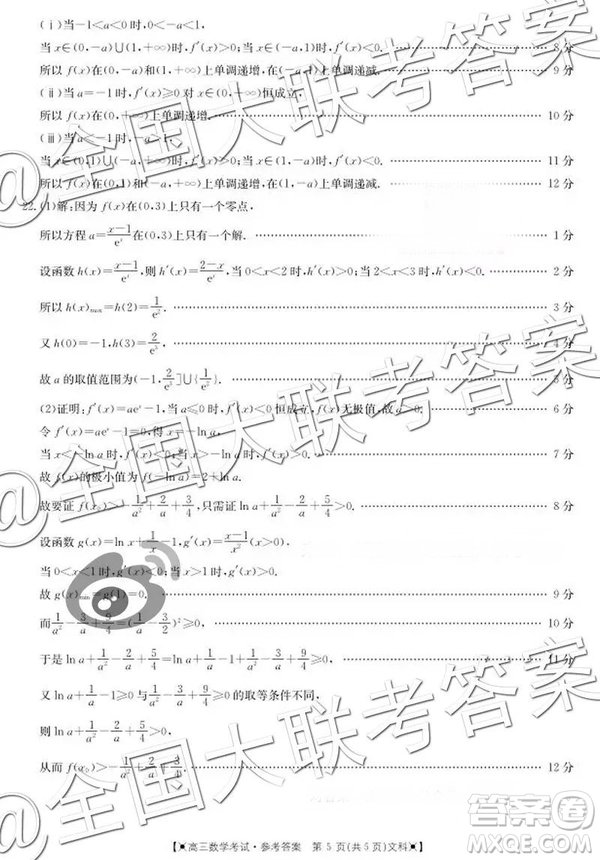 (ⅰ)当-1<a<0时,0<-a<1,
当x∈(0,-a)∪(1,+∞)时,f′(x)>0;当x∈(-a,1)时,f′(x)<0. 8分
所以f(x)在(0,-a)和(1,+∞)上单调递增,在(-a,1)上单调递减. 9分
(ⅱ)当a=-1时,f′(x)≥0对x∈(0,+∞)恒成立,
所以f(x)在(0,+∞)上单调递增. 10分
(ⅲ)当a<-1时,-a>1,
当x∈(0,1)∪(-a,+∞)时,f′(x)>0;当x∈(1,-a)时,f′(x)<0. 11分
所以f(x)在(0,1)和(-a,+∞)上单调递增,在(1,-a)上单调递减. 12分
22.(1)解:因为f(x)在(0,3)上只有一个零点,
所以方程a=(x-1)/eˣ在(0,3)上只有一个解. 1分
设函数h(x)=(x-1)/eˣ,则h′(x)=(2-x)/eˣ,当0<x<2时,h′(x)>0;当2<x<3时,h′(x)<0. 2分
所以h(x)max=h(2)=1/e². 3分
又h(0)=-1,h(3)=2/e³, 4分
故a的取值范围为(-1,2/e³]∪{1/e²}. 5分
(2)证明:f′(x)=aeˣ-1,当a≤0时,f′(x)<0恒成立,f(x)无极值,故a>0. 6分
令f′(x)=aeˣ-1=0,得x=-ln a.
当x<-ln a时,f′(x)<0;当x>-ln a时,f′(x)>0.
故f(x)的极小值为f(-ln a)=2+ln a.
故要证f(x₀)>-1/a²+2/a+3/4,只需证ln a+1/a²-2/a+5/4>0. 8分
设函数g(x)=ln x+1/x-1,g′(x)=(x-1)/x²(x>0),
当0<x<1时,g′(x)<0;当x>1时,g′(x)>0.
故g(x)min=g(1)=0. 9分
而1/a²-3/a+9/4=(1/a-3/2)²≥0, 10分
于是ln a+1/a²-2/a+5/4=ln a+1/a-1+1/a²-3/a+9/4≥0. 11分
又ln a+1/a-1≥0与1/a²-3/a+9/4≥0的取等条件不同,
则ln a+1/a²-2/a+5/4>0,
从而f(x₀)>-1/a²+2/a+3/4. 12分
【高三数学考试·参考答案 第5页(共5页)文科】
@全国大联考答案
@全国大联考答案
@全国大联考答案
答案圈